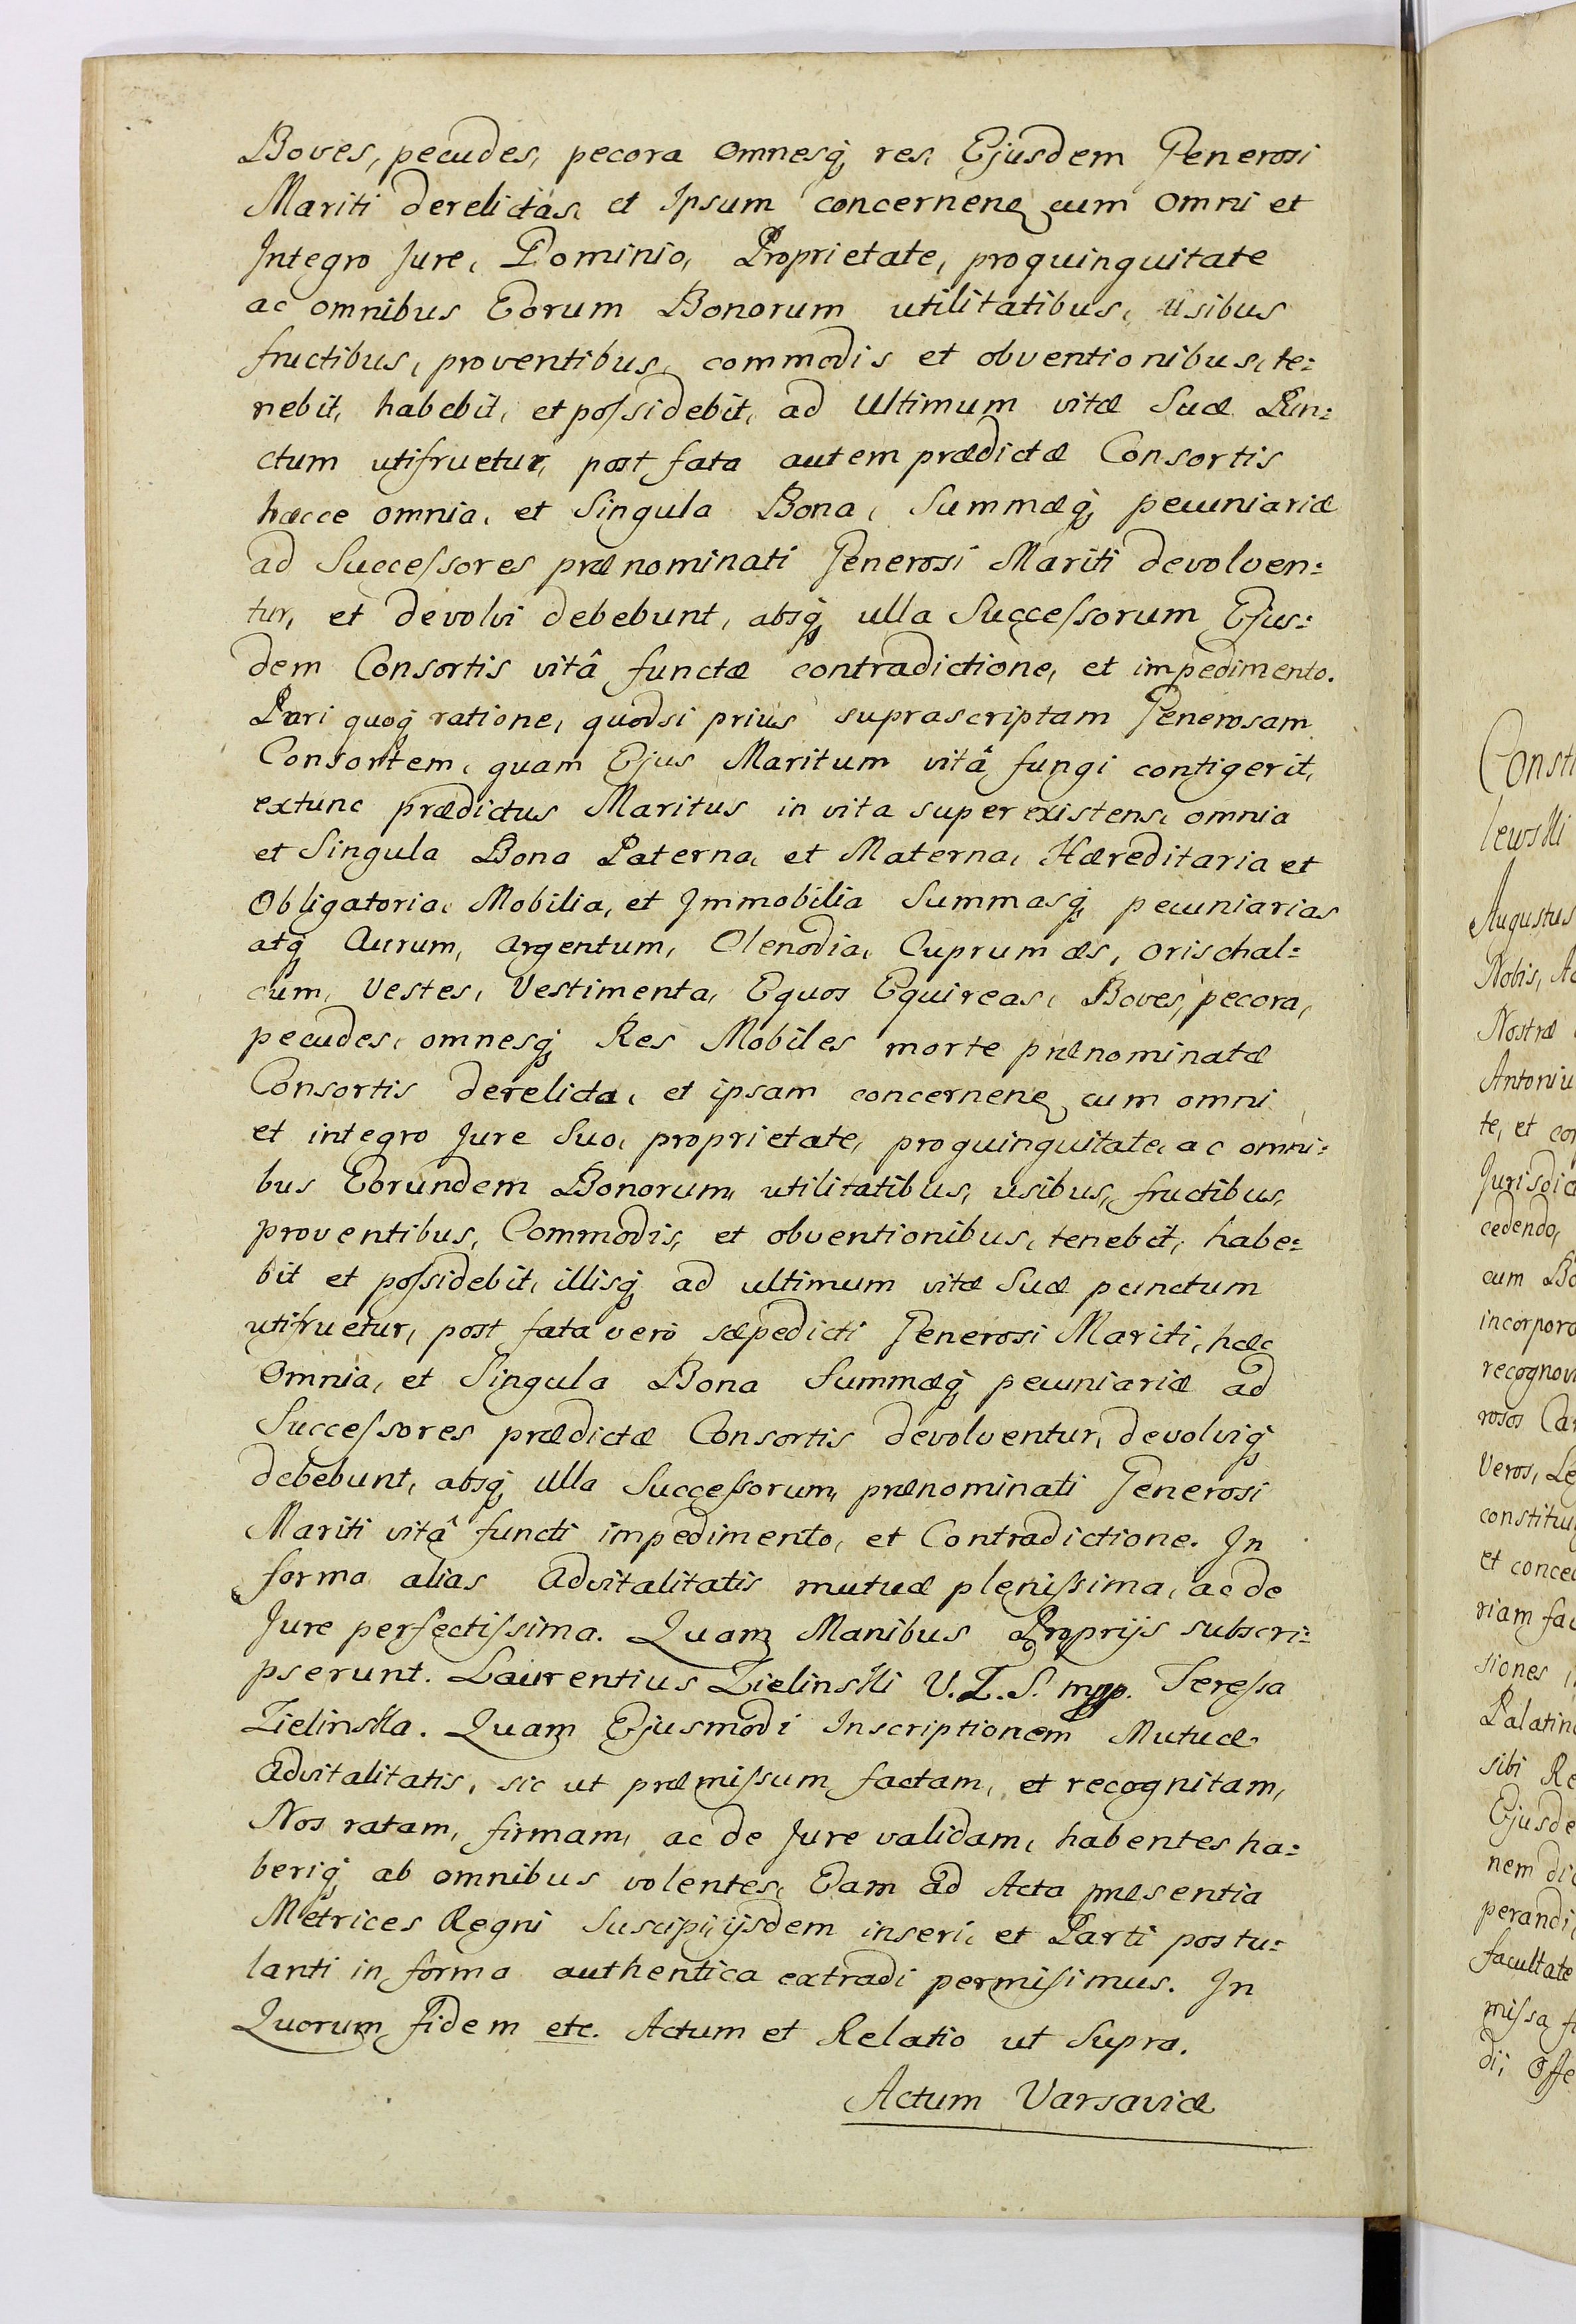 Boves, pecudes, pecora omnesq́ res, Ejusdem Generosi
Mariti derelictas, et Ipsum concernen cum omni et
Integro Jure, Dominio, Proprietate, proquinquitate
ac omnibus Eorum Bonorum utilitatibus, usibus
fructibus, proventibus, commodis et obventionibus, te:
nebit, habebit, et poſsidebit, ad Ultimum vitæ Suæ Pun:
ctum utifruetur, post fata autem prædictæ Consortis
hæcce omnia, et Singula Bona, Summæq́ pecuniariæ
ad Succeſsores prænominati Generosi Mariti devolven:
tur, et devolvi debebunt, absq́ ulla Succeſsorum Ejus:
dem Consortis vitâ functæ contradictione, et impedimento.
Pari quoq́ ratione, quodsi prius suprascriptam Generosam
Consortem, quam Ejus Maritum vitâ fungi contigerit,
extunc prædictus Maritus in vita superexistens, omnia
et Singula Bona Paterna, et Materna, Hæreditaria et
Obligatoria, Mobilia, et Immobilia Summasq́ pecuniarias
atq́ Aurum, Argentum, Clenodia, Cuprum æs, orischal:
cum, Vestes, Vestimenta, Equos Equireas, Boves, pecora,
pecudes, omnesq́ Res Mobiles morte prænominatæ
Consortis derelicta, et ipsam concernen cum omni
et integro Jure Suo, proprietate, proquinquitate, ac omni:
bus Eorundem Bonorum, utilitatibus, usibus, fructibus,
proventibus, Commodis, et obventionibus, tenebit, habe:
bit et poſsidebit, illisq́ ad ultimum vitæ Suæ punctum
utifruetur, post fata verò sæpedicti Generosi Mariti, hæc
Omnia, et Singula Bona Summæq́ pecuniariæ ad
Succeſsores prædictæ Consortis devolventur, devolviq́
debebunt, absq́ Ulla Succeſsorum, prænominati Generosi
Mariti vitâ functi impedimento, et Contradictione. In
forma alias Advitalitatis mutuæ pleniſsima, ac de
Jure perfectiſsima. Quam Manibus Proprijs subscri:
pserunt. Laurentius Zielinski V. Z. S. mpp. Tereſsa
Zielinska. Quam Ejusmodi Inscriptionem Mutuæ
Advitalitatis, sic ut præmiſsum factam, et recognitam,
Nos ratam, firmam, ac de Jure validam, habentes ha:
beriq́ ab omnibus volentes, Eam ad Acta præsentia
Metrices Regni Suscipi, ijsdem inseri, et Parti postu:
lanti in forma authentica extradi permiſimus. In
Quorum fidem etc. Actum et Relatio ut Supra.
Actum Varsaviæ
Consti
lewski
Augustus
Nobis, Ac
Nostræ
Antoniu
te, et co
Jurisdic
cedendo,
cum Bo
incorpora
recognov
rosos Ca
Veros, Le
constitu
et conce
riam fac
siones
Palatin
sibi Re
Ejusde
nem di
perandi
facultate
miſsa f
di, Offe